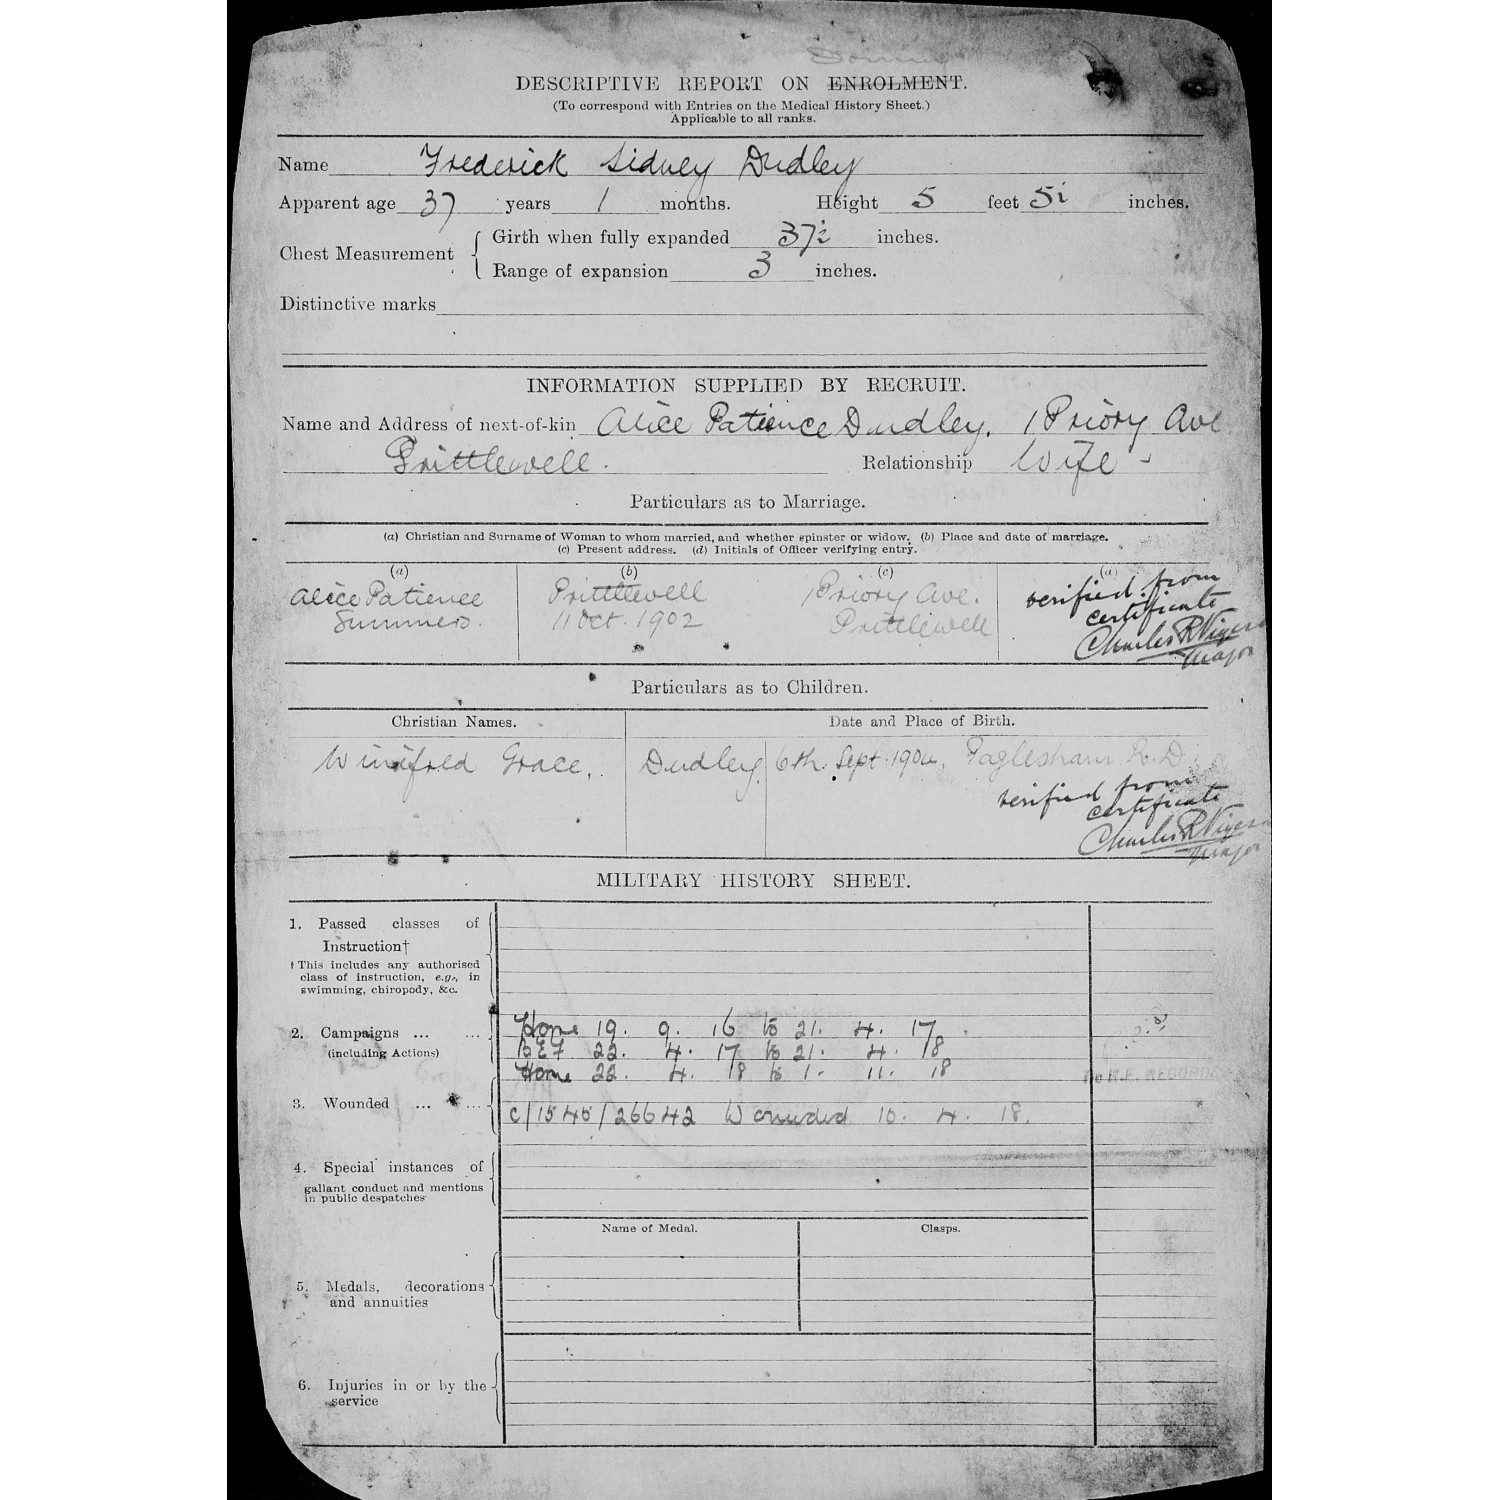 DESCRIPTIVE REPORT ON ENROLMENT.
(To correspond with Entries on the Medical History Sheet.)
Applicable to all ranks.
Name Frederick Sidney Dudley
Apparent age 37 years 1 months. Height 5 feet 5½ inches.
Chest Measurement { Girth when fully expanded 37½ inches.
Range of expansion 3 inches.
Distinctive marks
INFORMATION SUPPLIED BY RECRUIT.
Name and Address of next-of-kin Alice Patience Dudley, 1 Priory Ave
Prittlewell. Relationship Wife
Particulars as to Marriage.
(a) Christian and Surname of Woman to whom married, and whether spinster or widow. (b) Place and date of marriage.
(c) Present address. (d) Initials of Officer verifying entry.
(a) (b) (c) (d)
Alice Patience Prittlewell Priory Ave. verified from
Summers. 11 Oct. 1902 Prittlewell certificate
Charles R Vigers
Major
Particulars as to Children.
Christian Names. Date and Place of Birth.
Winifred Grace, Dudley 6th. Sept. 1904, Paglesham R.D.
verified from
certificate
Charles R Vigers
Major
MILITARY HISTORY SHEET.
1. Passed classes of
Instruction†
† This includes any authorised
class of instruction, e.g., in
swimming, chiropody, &c.
2. Campaigns ... ... Home 19. 9. 16 to 21. 4. 17.
(including Actions) BEF 22. 4. 17 to 21. 4. 18
Home 22. 4. 18 to 1. 11. 18
3. Wounded ... ... C/1545/26642 Wounded 10. 4. 18.
4. Special instances of
gallant conduct and mentions
in public despatches
Name of Medal. Clasps.
5. Medals, decorations
and annuities
6. Injuries in or by the
service